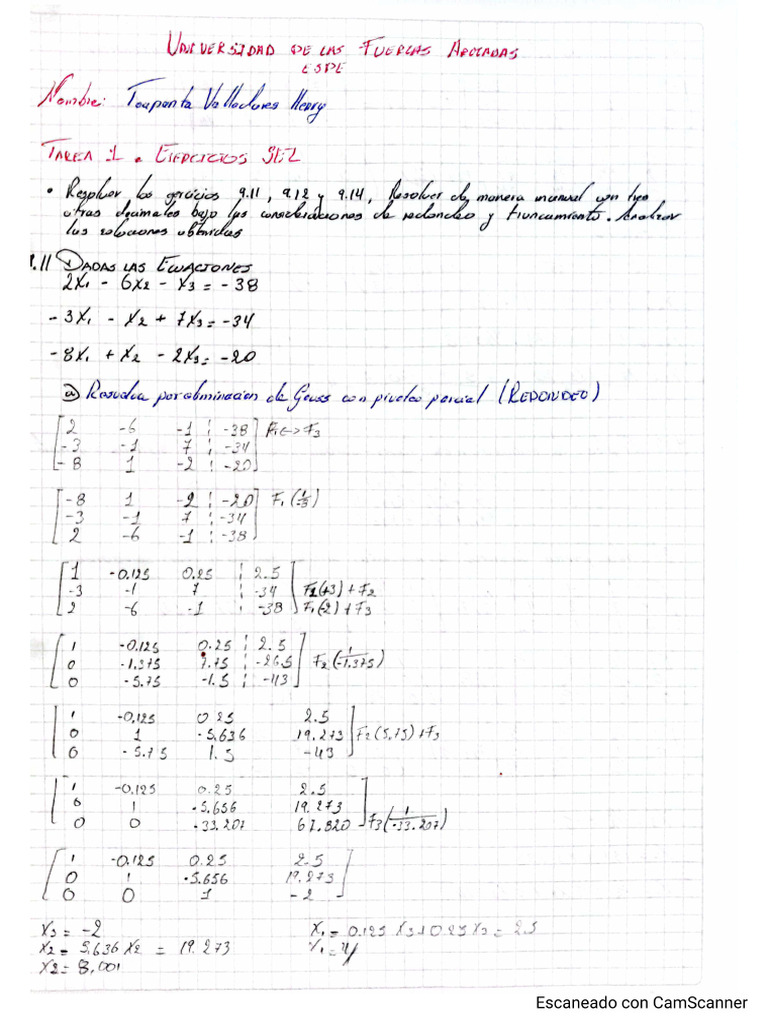 UNIVERSIDAD DE LAS FUERZAS ARMADAS
ESPE
Nombre: Toapanta Valladares Henry
TAREA 1 • EJERCICIOS SEL
• Resolver los ejercicios 9.11, 9.12 y 9.14, Resolver de manera manual con tres
cifras decimales bajo las consideraciones de redondeo y truncamiento. Analizar
las soluciones obtenidas
9.11 DADAS LAS ECUACIONES
2X1 - 6X2 - X3 = -38
-3X1 - X2 + 7X3 = -34
-8X1 + X2 - 2X3 = -20
a) Resuelva por eliminacion de Gauss con pivoteo parcial (REDONDEO)
[2 -6 -1 ¦ -38] F1<->F3
-3 -1 7 ¦ -34
-8 1 -2 ¦ -20
[-8 1 -2 ¦ -20] F1(1/-8)
-3 -1 7 ¦ -34
2 -6 -1 ¦ -38
[1 -0.125 0.25 ¦ 2.5]
-3 -1 7 ¦ -34 F1(+3)+F2
2 -6 -1 ¦ -38 F1(-2)+F3
[1 -0.125 0.25 ¦ 2.5]
0 -1.375 7.75 ¦ -26.5 F2(1/-1.375)
0 -5.75 -1.5 ¦ -43
[1 -0.125 0.25 2.5]
0 1 -5.636 19.273 F2(5.75)+F3
0 -5.75 1.5 -43
[1 -0.125 0.25 2.5]
0 1 -5.656 19.273
0 0 -33.207 67.820 F3(1/-33.207)
[1 -0.125 0.25 2.5]
0 1 -5.656 19.273
0 0 1 -2
X3 = -2
X2 = 5.636 X2 = 19.273
X2 = 8,001
X1 = 0.125 X3 + 0.25 X3 = 2.5
X1 = 4
Escaneado con CamScanner